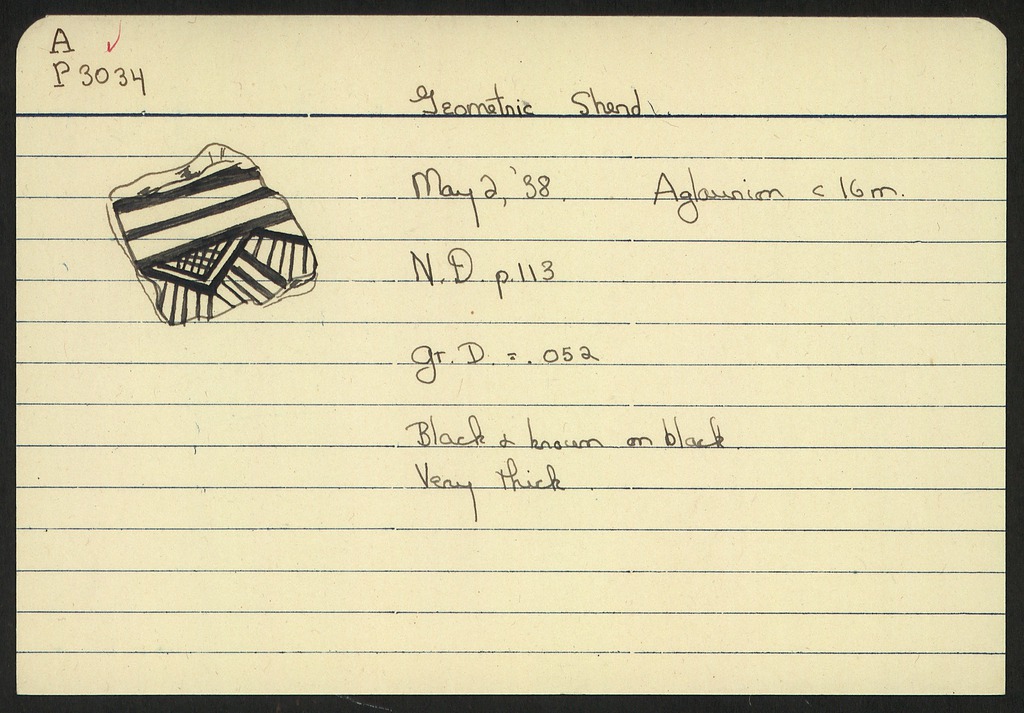 A
P 3034
Geometric Sherd.
May 2, '38. Aglaurion c 16 m.
N.D. p. 113
gr. D. = .052
Black & brown on black
Very thick